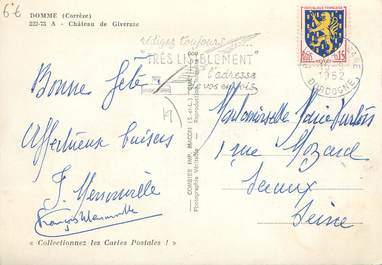 6€
DOMME (Corrèze)
222-73 A - Château de Giverzac
rédigez toujours
TRÈS LISIBLEMENT
l'adresse
de vos envois
1962
DORDOGNE
0,15
Bonne fête
Affectueux baisers
COMBIER IMP. MACON (S.-et-L.)
Photographie Véritable - Reproduction
Mademoiselle Marie
1 rue Mozard
Sceaux
Seine
« Collectionnez les Cartes Postales ! »